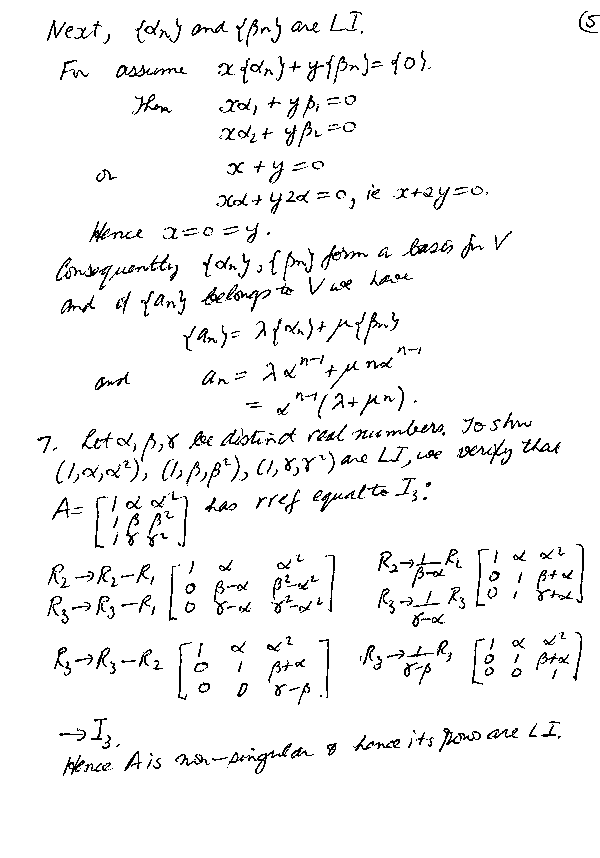 Next, {αn} and {βn} are LI. (5
For assume x{αn} + y{βn} = {0}.
Then xα₁ + yβ₁ = 0
xα₂ + yβ₂ = 0
or x + y = 0
xα + y2α = 0, ie x+2y=0.
Hence x=0=y.
Consequently {αn}, {βn} form a basis for V
and if {an} belongs to V we have
{an} = λ{αn} + μ{βn}
and an = λαⁿ⁻¹ + μnαⁿ⁻¹
= αⁿ⁻¹(λ+μn).
7. Let α, β, γ be distinct real numbers. To show
(1,α,α²), (1,β,β²), (1,γ,γ²) are LI, we verify that
A = [1 α α²; 1 β β²; 1 γ γ²] has rref equal to I₃:
R₂→R₂−R₁ R₃→R₃−R₁ [1 α α²; 0 β−α β²−α²; 0 γ−α γ²−α²] R₂→1/(β−α) R₂ R₃→1/(γ−α) R₃ [1 α α²; 0 1 β+α; 0 1 γ+α]
R₃→R₃−R₂ [1 α α²; 0 1 β+α; 0 0 γ−β] R₃→1/(γ−β) R₃ [1 α α²; 0 1 β+α; 0 0 1]
→ I₃.
Hence A is non-singular & hence its rows are LI.